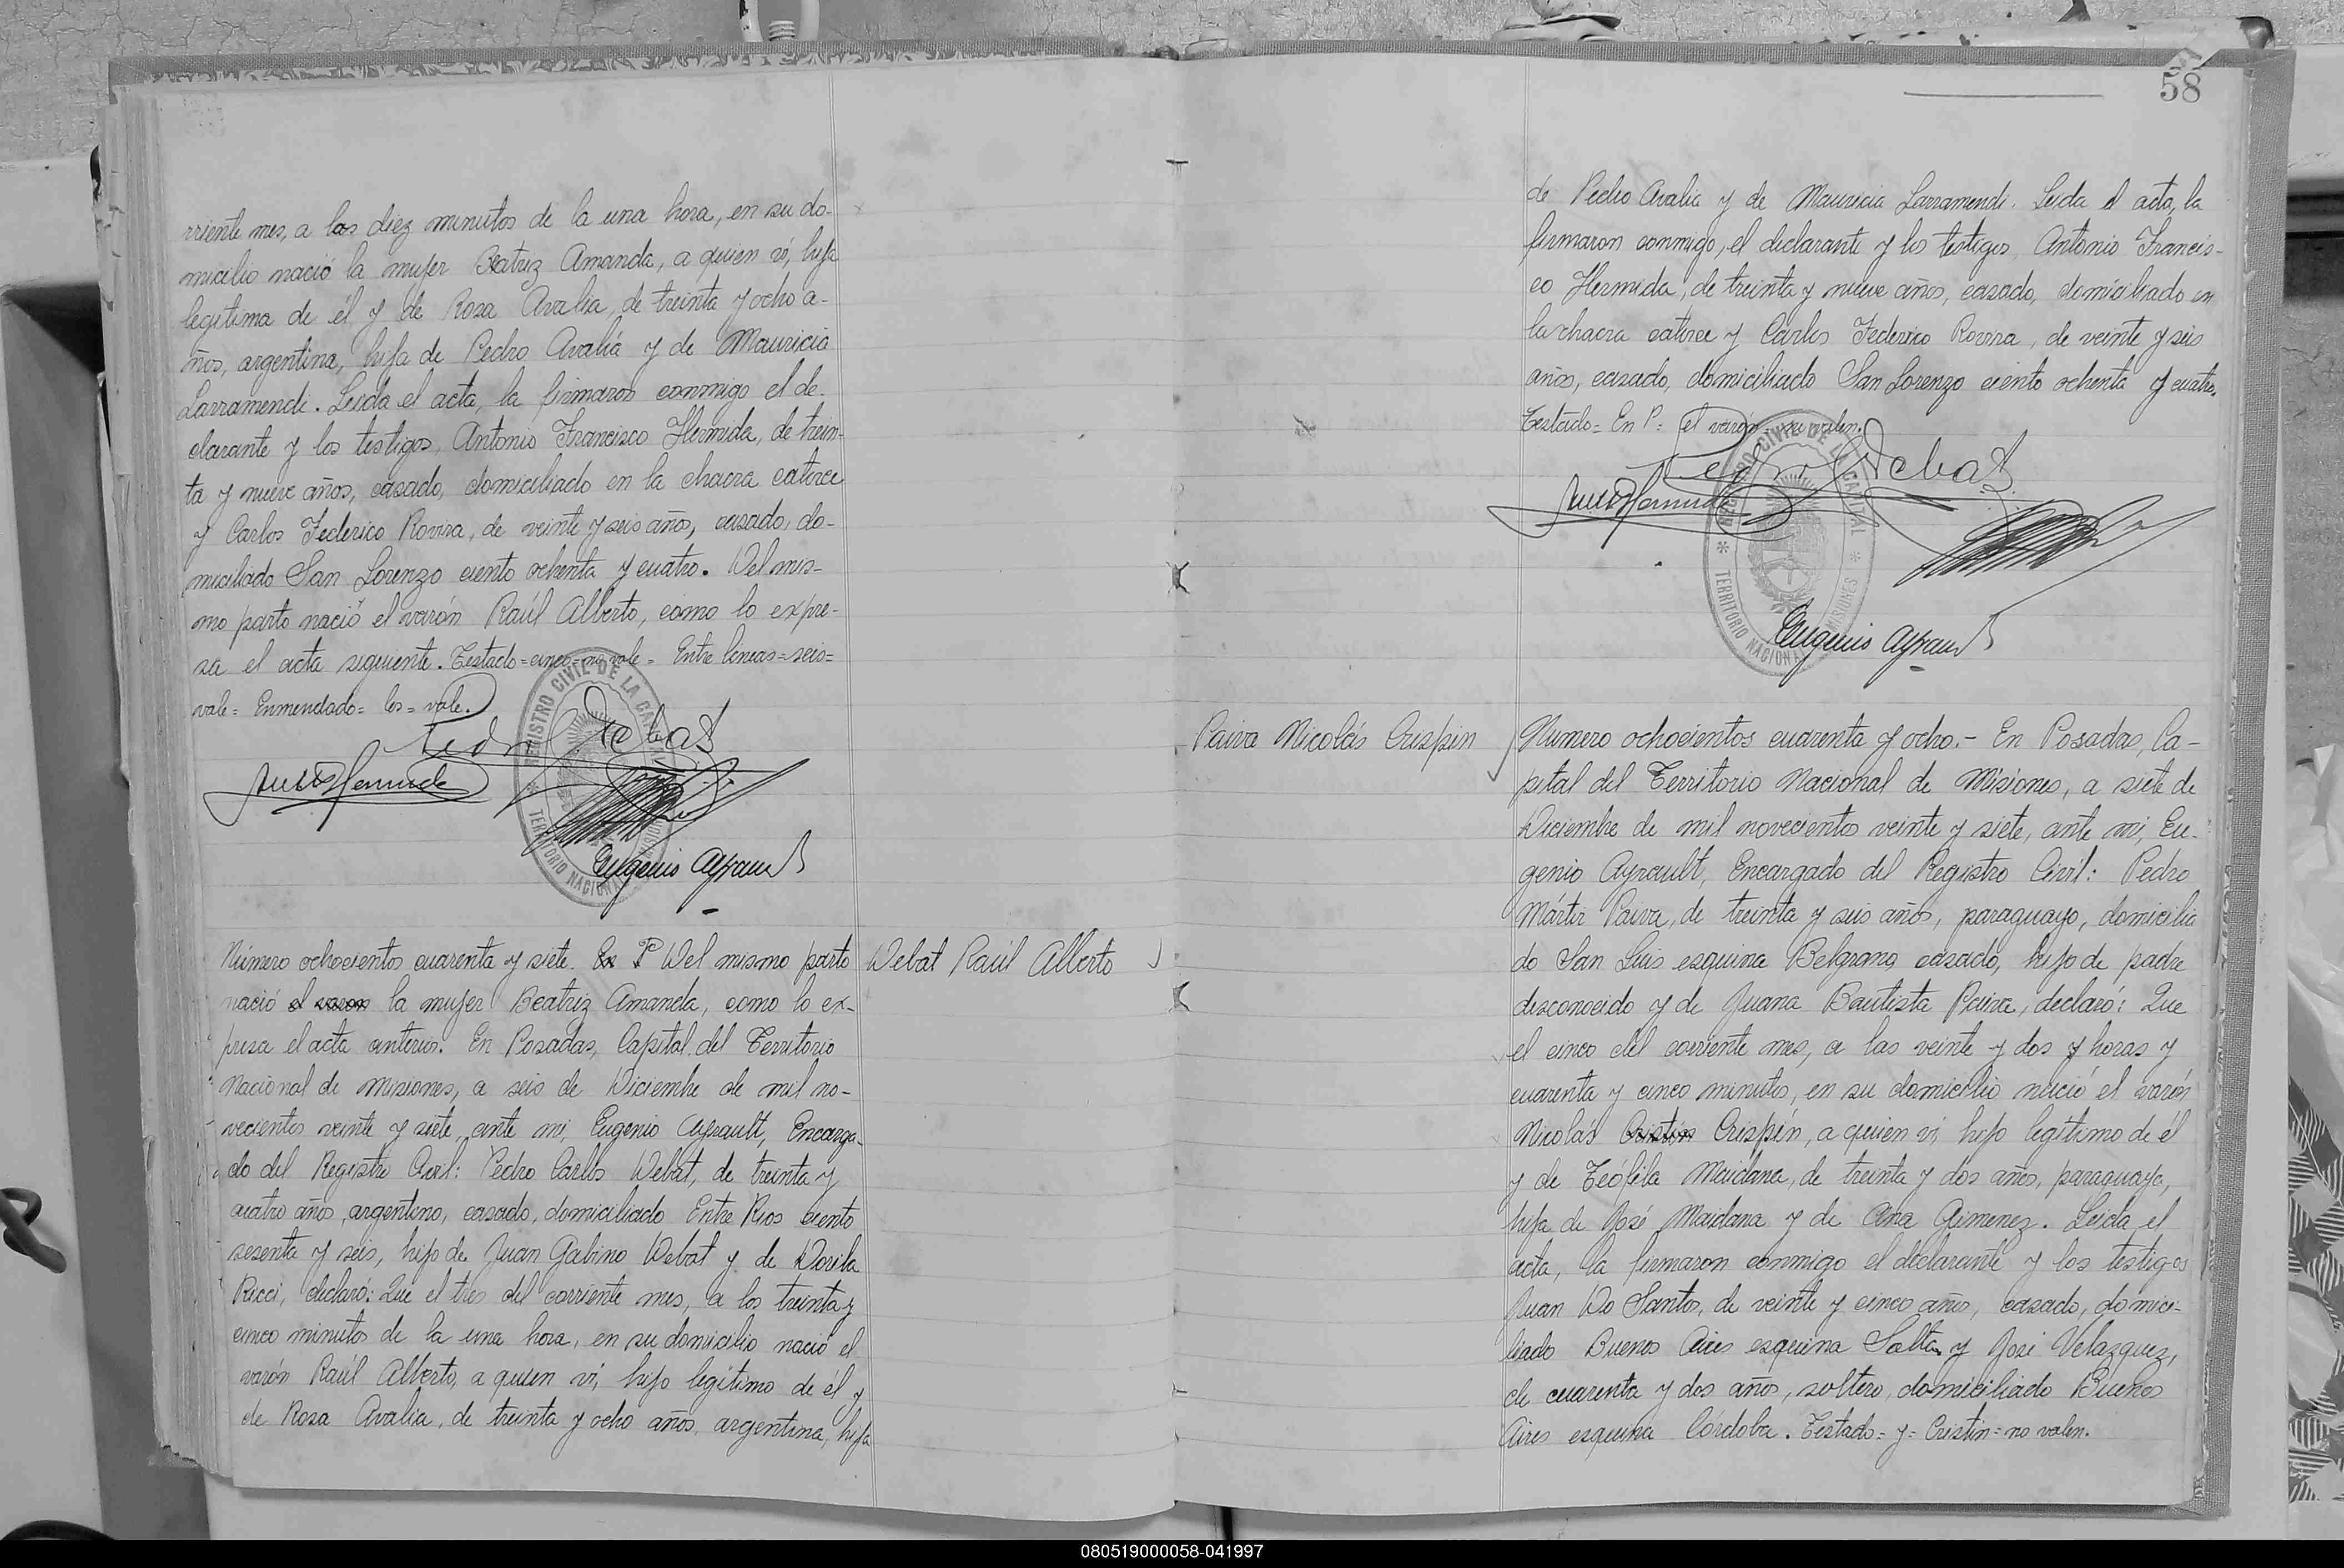 rriente mes, a los diez minutos de la una hora, en su do-
micilio nació la mujer Beatriz Amanda, a quien ví, hija
legítima de él y de Rosa Avalia, de treinta y ocho a-
ños, argentina, hija de Pedro Avalia y de Mauricia
Larramendi. Leida el acta, la firmaron conmigo el de-
clarante y los testigos, Antonio Francisco Hermida, de trein-
ta y nueve años, casado, domiciliado en la chacra catorce
y Carlos Federico Rovira, de veinte y seis años, casado, do-
miciliado San Lorenzo ciento ochenta y cuatro. Del mis-
mo parto nació el varón Raúl Alberto, como lo expre-
sa el acta siguiente. Testado=cinco=no vale= Entre lineas=seis=
vale= Enmendado= los= vale.
Pedro Debat
Hermida
REGISTRO CIVIL DE LA CAPITAL
TERRITORIO NACIONAL
Eugenio Ayrault
Número ochocientos cuarenta y siete. En P Del mismo parto
nació el varon la mujer Beatriz Amanda, como lo ex-
presa el acta anterior. En Posadas, Capital del Territorio
Nacional de Misiones, a seis de Diciembre de mil no-
vecientos veinte y siete, ante mi, Eugenio Ayrault, Encarga-
do del Registro Civil: Pedro Carlos Debat, de treinta y
cuatro años, argentino, casado, domiciliado Entre Rios ciento
sesenta y seis, hijo de Juan Gabino Debat y de Dorila
Ricci, declaró: Que el tres del corriente mes, a los treinta y
cinco minutos de la una hora, en su domicilio nació el
varón Raúl Alberto, a quien ví, hijo legítimo de él y
de Rosa Avalia, de treinta y ocho años, argentina, hija
Debat Raúl Alberto
58
de Pedro Avalia y de Mauricia Larramendi. Leida el acta, la
firmaron conmigo, el declarante y los testigos, Antonio Francis-
co Hermida, de treinta y nueve años, casado, domiciliado en
la chacra catorce y Carlos Federico Rovira, de veinte y seis
años, casado, domiciliado San Lorenzo ciento ochenta y cuatro.
Testado= En P= el varón= no valen.
Pedro Debat
Hermida
REGISTRO CIVIL DE LA CAPITAL
TERRITORIO NACIONAL MISIONES
Eugenio Ayrault
Paiva Nicolás Crispín
Numero ochocientos cuarenta y ocho.- En Posadas, Ca-
pital del Territorio Nacional de Misiones, a siete de
Diciembre de mil novecientos veinte y siete, ante mi, Eu-
genio Ayrault, Encargado del Registro Civil: Pedro
Mártir Paiva, de treinta y seis años, paraguayo, domicilia
do San Luis esquina Belgrano, casado, hijo de padre
desconocido y de Juana Bautista Paiva, declaró: Que
el cinco del corriente mes, a las veinte y dos y horas y
cuarenta y cinco minutos, en su domicilio nació el varón
Nicolás Cristin Crispín, a quien ví, hijo legítimo de él
y de Teófila Maidana, de treinta y dos años, paraguaya,
hija de José Maidana y de Ana Gimenez. Leida el
acta, la firmaron conmigo el declarante y los testigos
Juan Do Santos, de veinte y cinco años, casado, domici-
liado Buenos Aires esquina Salta y José Velazquez,
de cuarenta y dos años, soltero, domiciliado Buenos
Aires esquina Córdoba. Testado= y= Cristin= no valen.
080519000058-041997